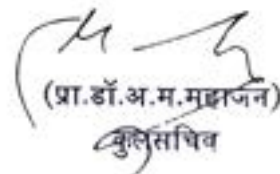 (प्रा.डॉ.अ.म.महाजन)
कुलसचिव